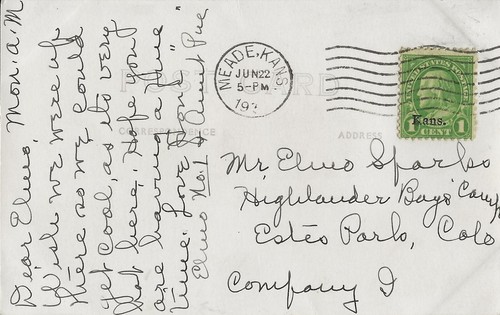 Mon. A.M
Dear Elmo,
Wish we were up
there so we could
get cool, as its very
hot here. Hope you
are having a fine
time. Love from
Elmo No. 1 & Aunt
POST CARD
CORRESPONDENCE
ADDRESS
MEADE, KANS.
JUN 22
5-PM
193
UNITED STATES POSTAGE
Kans.
1 CENT 1
Mr. Elmo Sparks
Highlander Boys' Camp
Estes Park, Colo
Company I